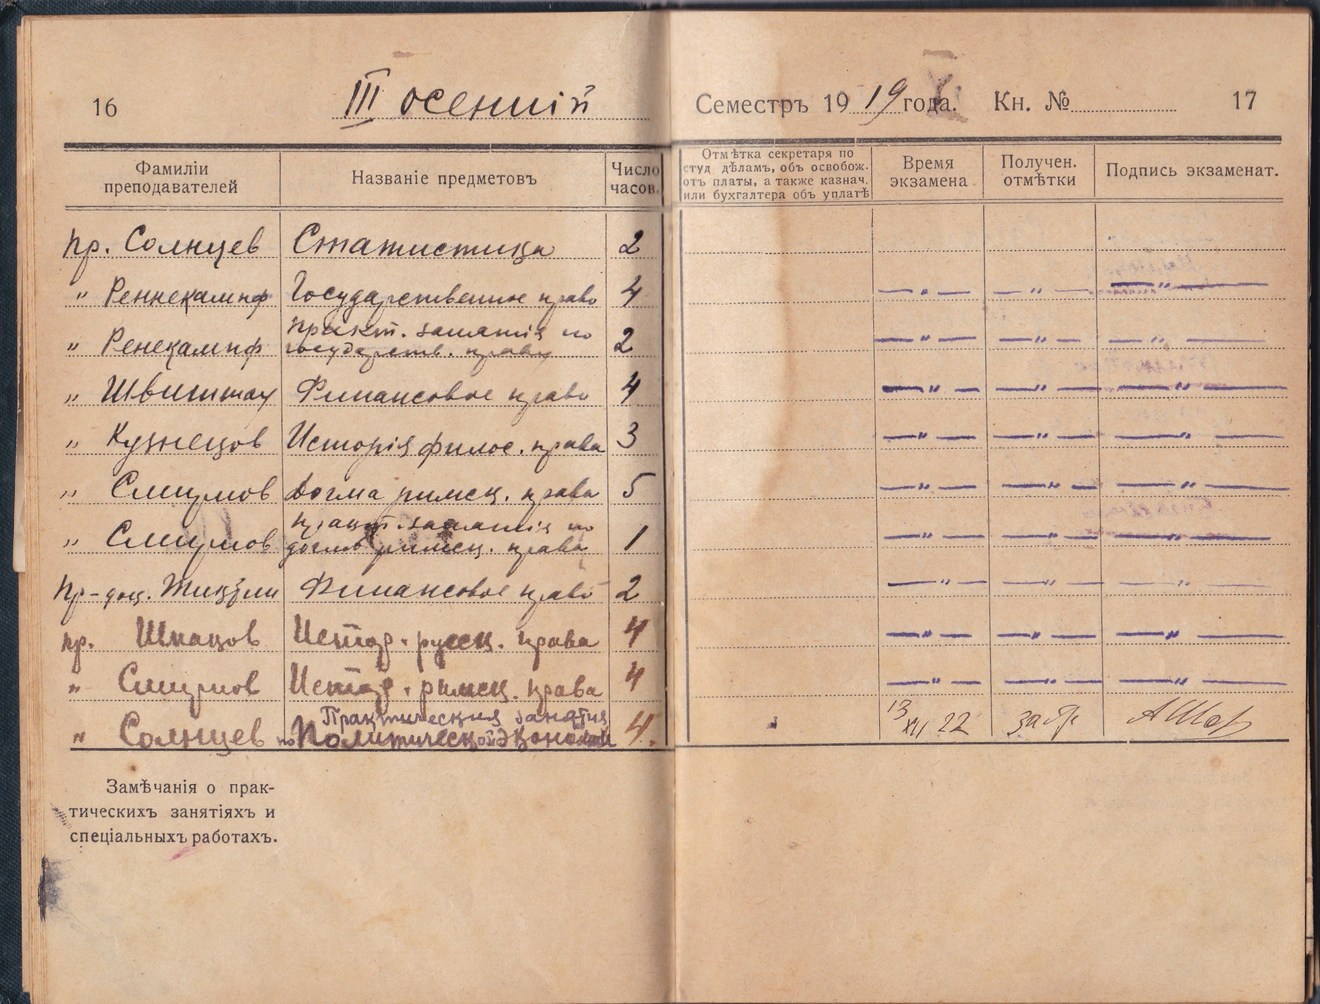 16
III осеннiй
Семестръ 1919 года. Кн. №
17
Фамиліи преподавателей
Названіе предметовъ
Число часов.
Отмѣтка секретаря по
студ дѣламъ, объ освобож.
отъ платы, а также казнач.
или бухгалтера объ уплатѣ
Время экзамена
Получен. отмѣтки
Подпись экзаменат.
пр. Солнцев Статистика 2
" Реннекампф Государственное право 4 — " — — " — — " —
" Ренекампф практ. занятiя по
государств. праву 2 — " — — " — — " —
" Швиттау Финансовое право 4 — " — — " — — " —
" Кузнецов Исторiя филос. права 3 — " — — " — — " —
" Смирнов Догма римск. права 5 — " — — " — — " —
" Смирнов практ. занятiя по
догме римск. права 1 — " — — " — — " —
Пр-доц. Финансовое право 2 — " — — " — — " —
пр. Шпаков Истор. русск. права 4 — " — — " — — " —
" Смирнов Истор. римск. права 4 — " — — " — — " —
" Солнцев Практическия занятия
по Политической экономии 4. 13 XII 22
Замѣчанія о прак-
тическихъ занятіяхъ и
спеціальныхъ работахъ.